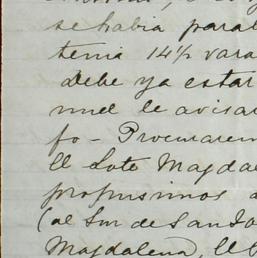 se habia paral
tenia 14½ vara
Debe ya estar
nuel le avisar
fo - Procuraren
el Lote Magdal
propusimos a
(al Sur de San Ja
Magdalena,